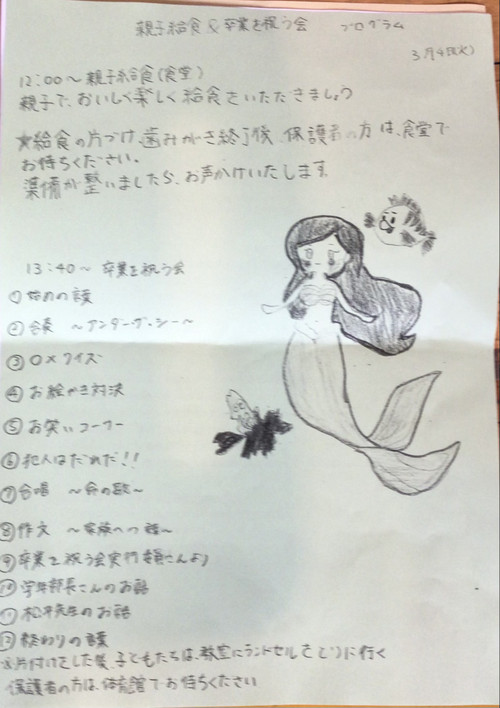 親子給食&卒業を祝う会 プログラム
3月4日(火)
12:00〜親子給食(食堂)
親子で、おいしく楽しく給食をいただきましょう
★給食の片づけ、歯みがき終了後、保護者の方は、食堂で
お待ちください。
準備が整いましたら、お声かけいたします。
13:40〜 卒業を祝う会
① 始めの言葉
② 合奏 〜アンダー・ザ・シー〜
③ ○×クイズ
④ お絵かき対決
⑤ お笑いコーナー
⑥ 犯人はだれだ!!
⑦ 合唱 〜命の歌〜
⑧ 作文 〜家族への
⑨ 卒業を祝う会実行委員さんより
⑩ 学年部長さんのお話
⑪ 松井先生のお話
⑫ 終わりの言葉
※片付けをした後、子どもたちは、教室にランドセルをとりに行く
保護者の方は、体育館でお待ちください